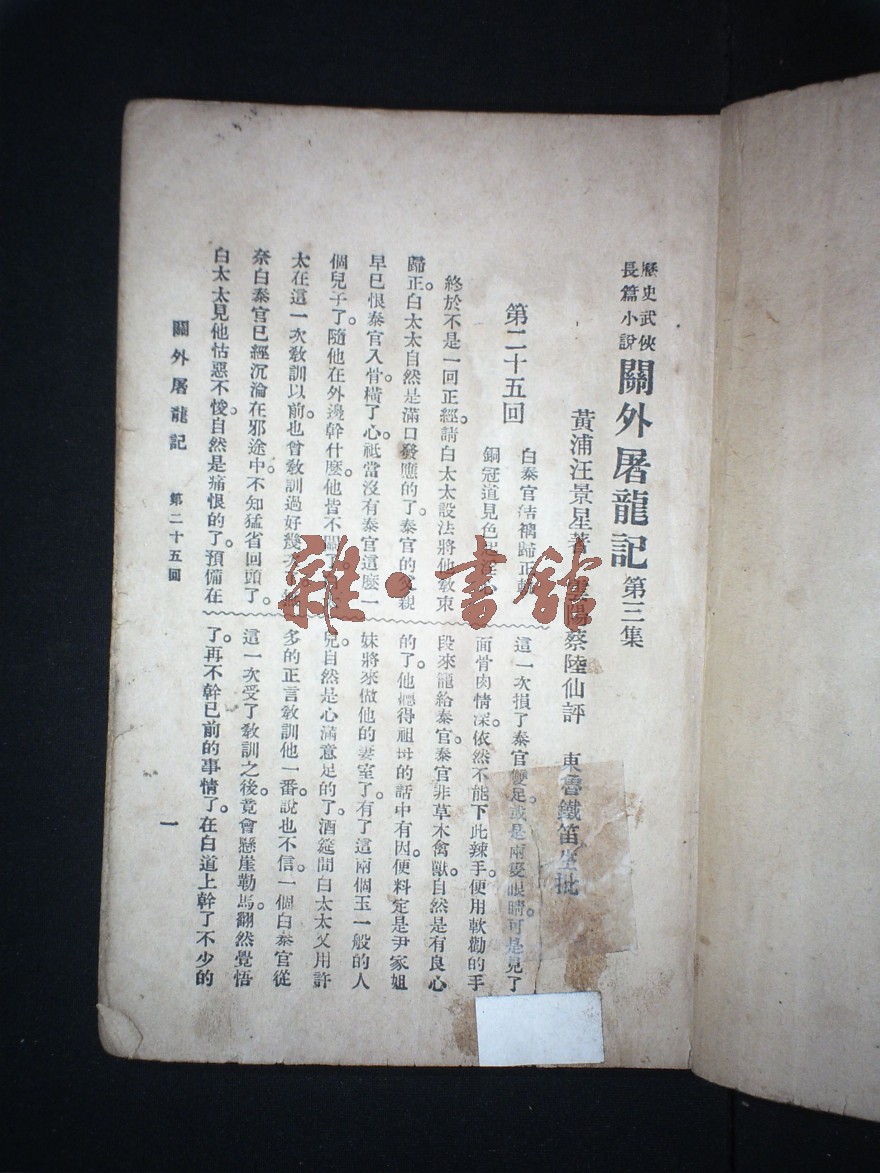 歷史武俠
長篇小說
關外屠龍記 第三集
黃浦汪景星著 雲陽蔡陸仙評 東魯鐵笛生批
第二十五回
白泰官結褵歸正
銅冠道見色起淫心
終於不是一回正經請白太太設法將他教束
歸正白太太自然是滿口發應的了。泰官的父親
早已恨泰官入骨橫了心。祇當沒有泰官這麼一
個兒子了隨他在外邊幹什麼。他皆不
太在這一次教訓以前。也曾教訓過好幾次
奈白泰官已經沉淪在邪途中。不知猛省回頭了。
白太太見他怙惡不悛。自然是痛恨的了。預備在
這一次損了泰官雙足。或是兩隻眼睛。可是見了
面骨肉情深。依然不能下此辣手。便用軟勸的手
段來籠給泰官。泰官非草木禽獸。自然是有良心
的了。他聽得祖母的話中有因。便料定是尹家姐
妹將來做他的妻室了。有了這兩個玉一般的人
兒。自然是心滿意足的了。酒筵間白太太又用許
多的正言教訓他一番。說也不信。一個白泰官從
這一次受了教訓之後。竟會懸崖勒馬。翻然覺悟
了。再不幹已前的事情了。在白道上幹了不少的
關外屠龍記 第二十五回 一
雜·書館